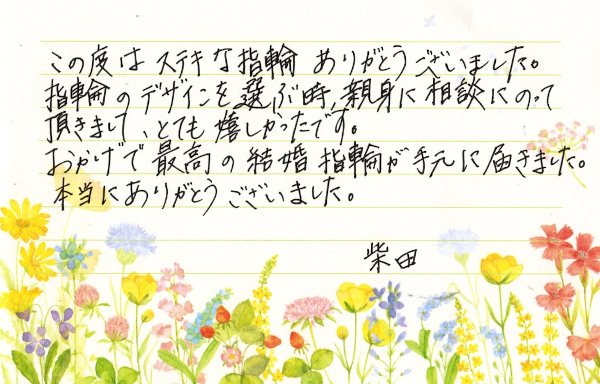 この度はステキな指輪ありがとうございました。
指輪のデザインを選ぶ時、親身に相談にのって
頂きまして、とても嬉しかったです。
おかげで最高の結婚指輪が手元に届きました。
本当にありがとうございました。
柴田